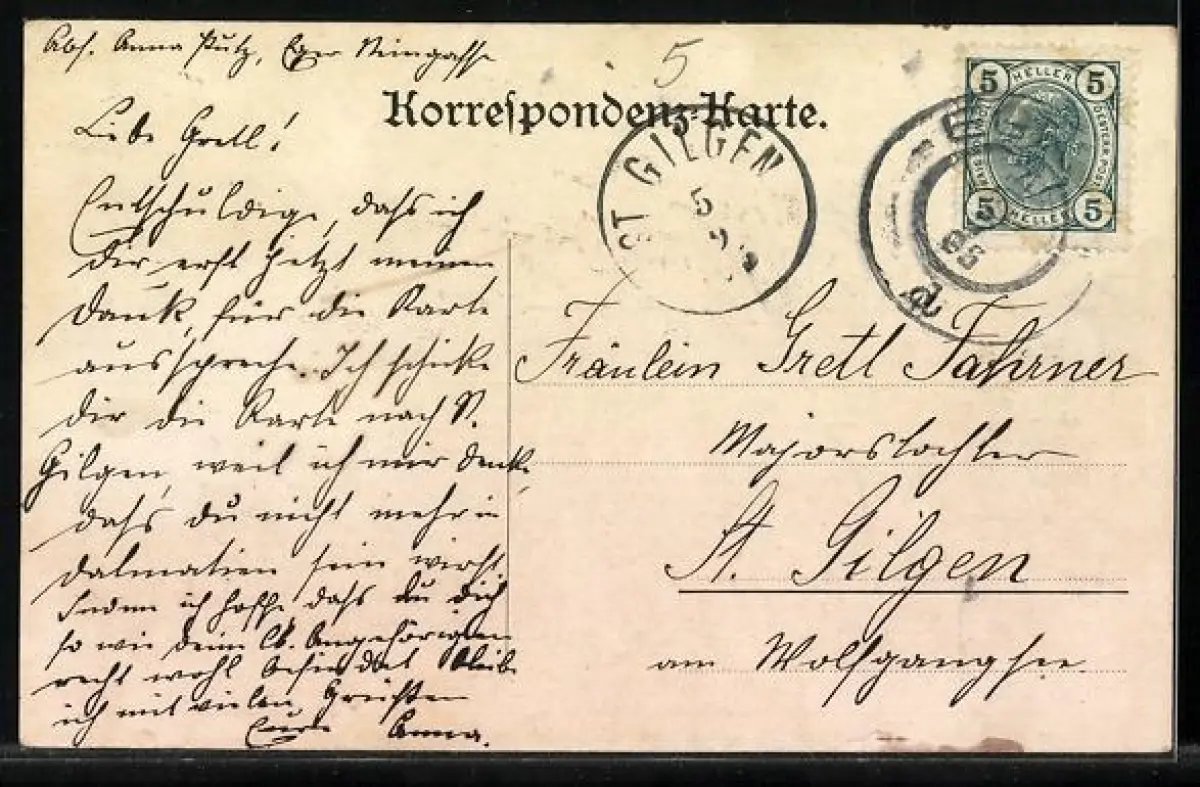 Abs. Anna Putz, Eger Steingasse
5
Korrespondenz-Karte.
Liebe Gretl!
Entschuldige, dass ich
dir erst jetzt meinen
Dank, für die Karte
ausspreche. Ich schicke
dir die Karte nach St.
Gilgen, weil ich mir denke,
dass du nicht mehr in
Dalmatien sein wirst.
Indem ich hoffe, dass du dich
so wie deine lb. Angehörigen
recht wohl befindet bleibe
ich mit vielen Grüßen
Eure Anna.
ST GILGEN
5
9
5 HELLER 5
5 HELLER 5
05
Fräulein Gretl Fahrner
Majorstochter
St. Gilgen
am Wolfgangsee